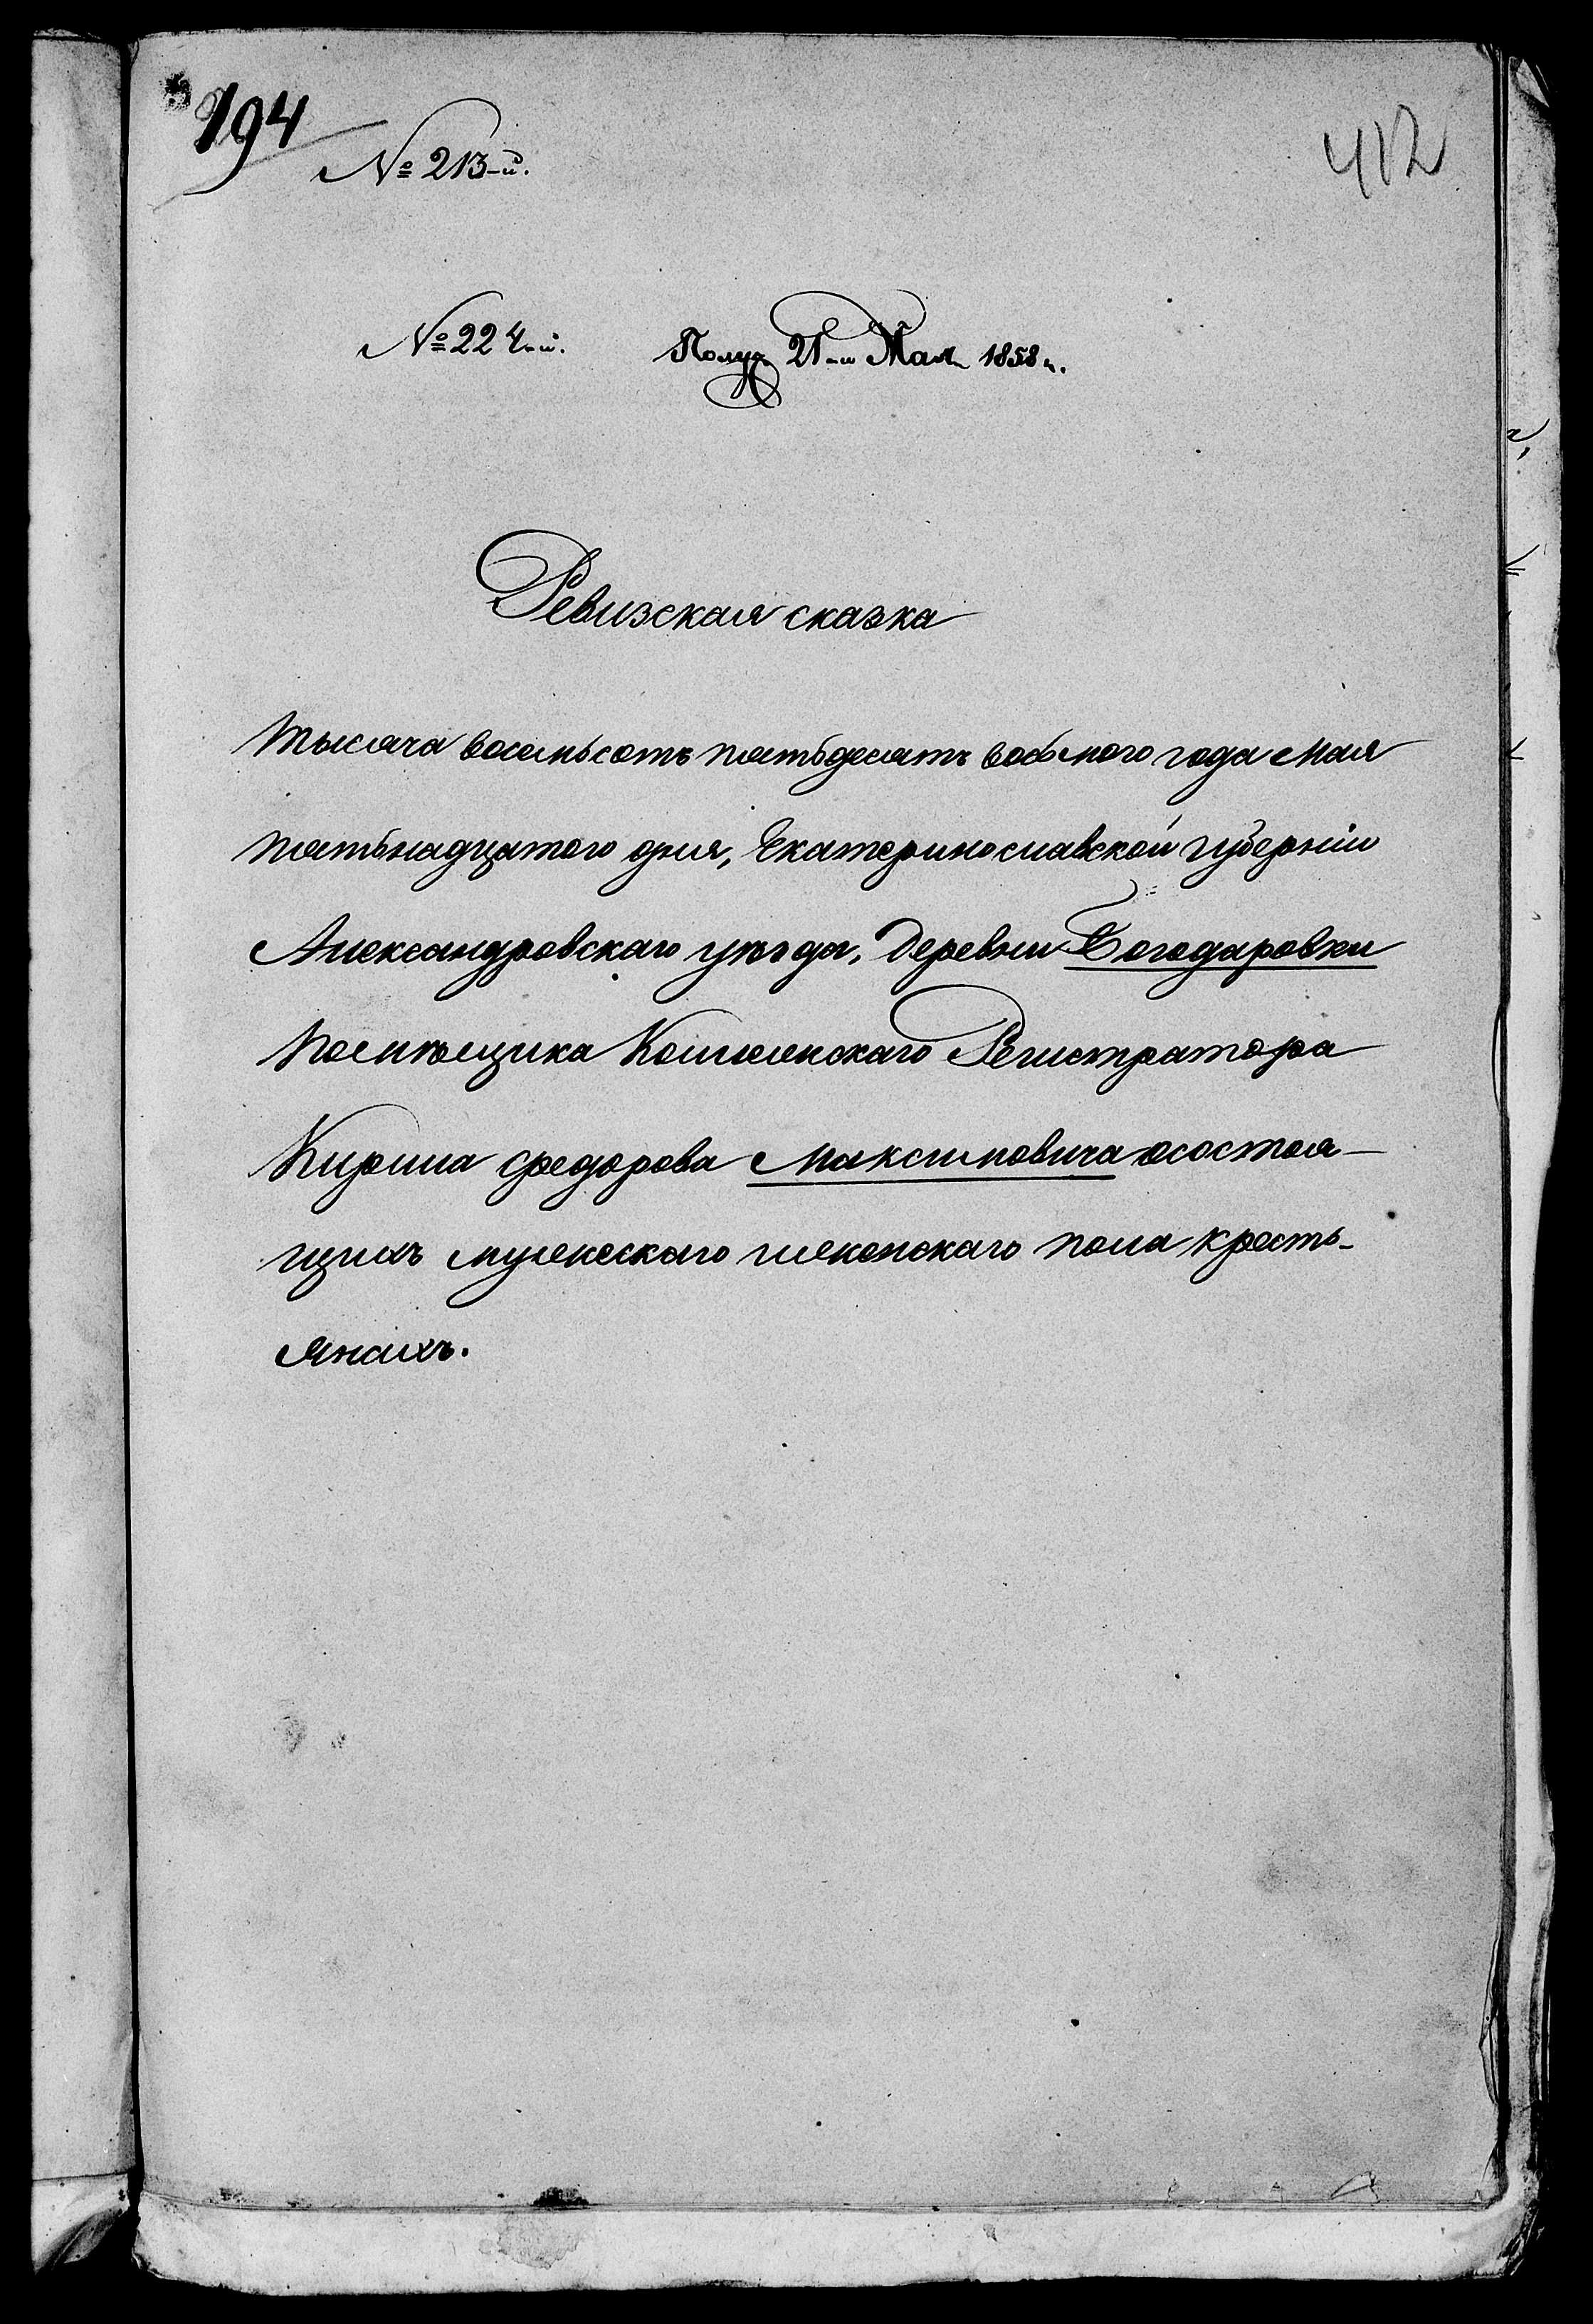 194
412
№ 213-й.
№ 224-й. Получ. 21-го Мая 1858 г.
Ревизская сказка
Тысяча восемьсотъ пятьдесятъ восьмого года мая
пятьнадцатого дня, Екатеринославской губерніи
Александровскаго уѣзда, деревни Богодаровки
помѣщика Колежскаго Регистратора
Кирила Федорова Максимовича осостоя-
щихъ мужескаго женскаго пола кресть-
янахъ.